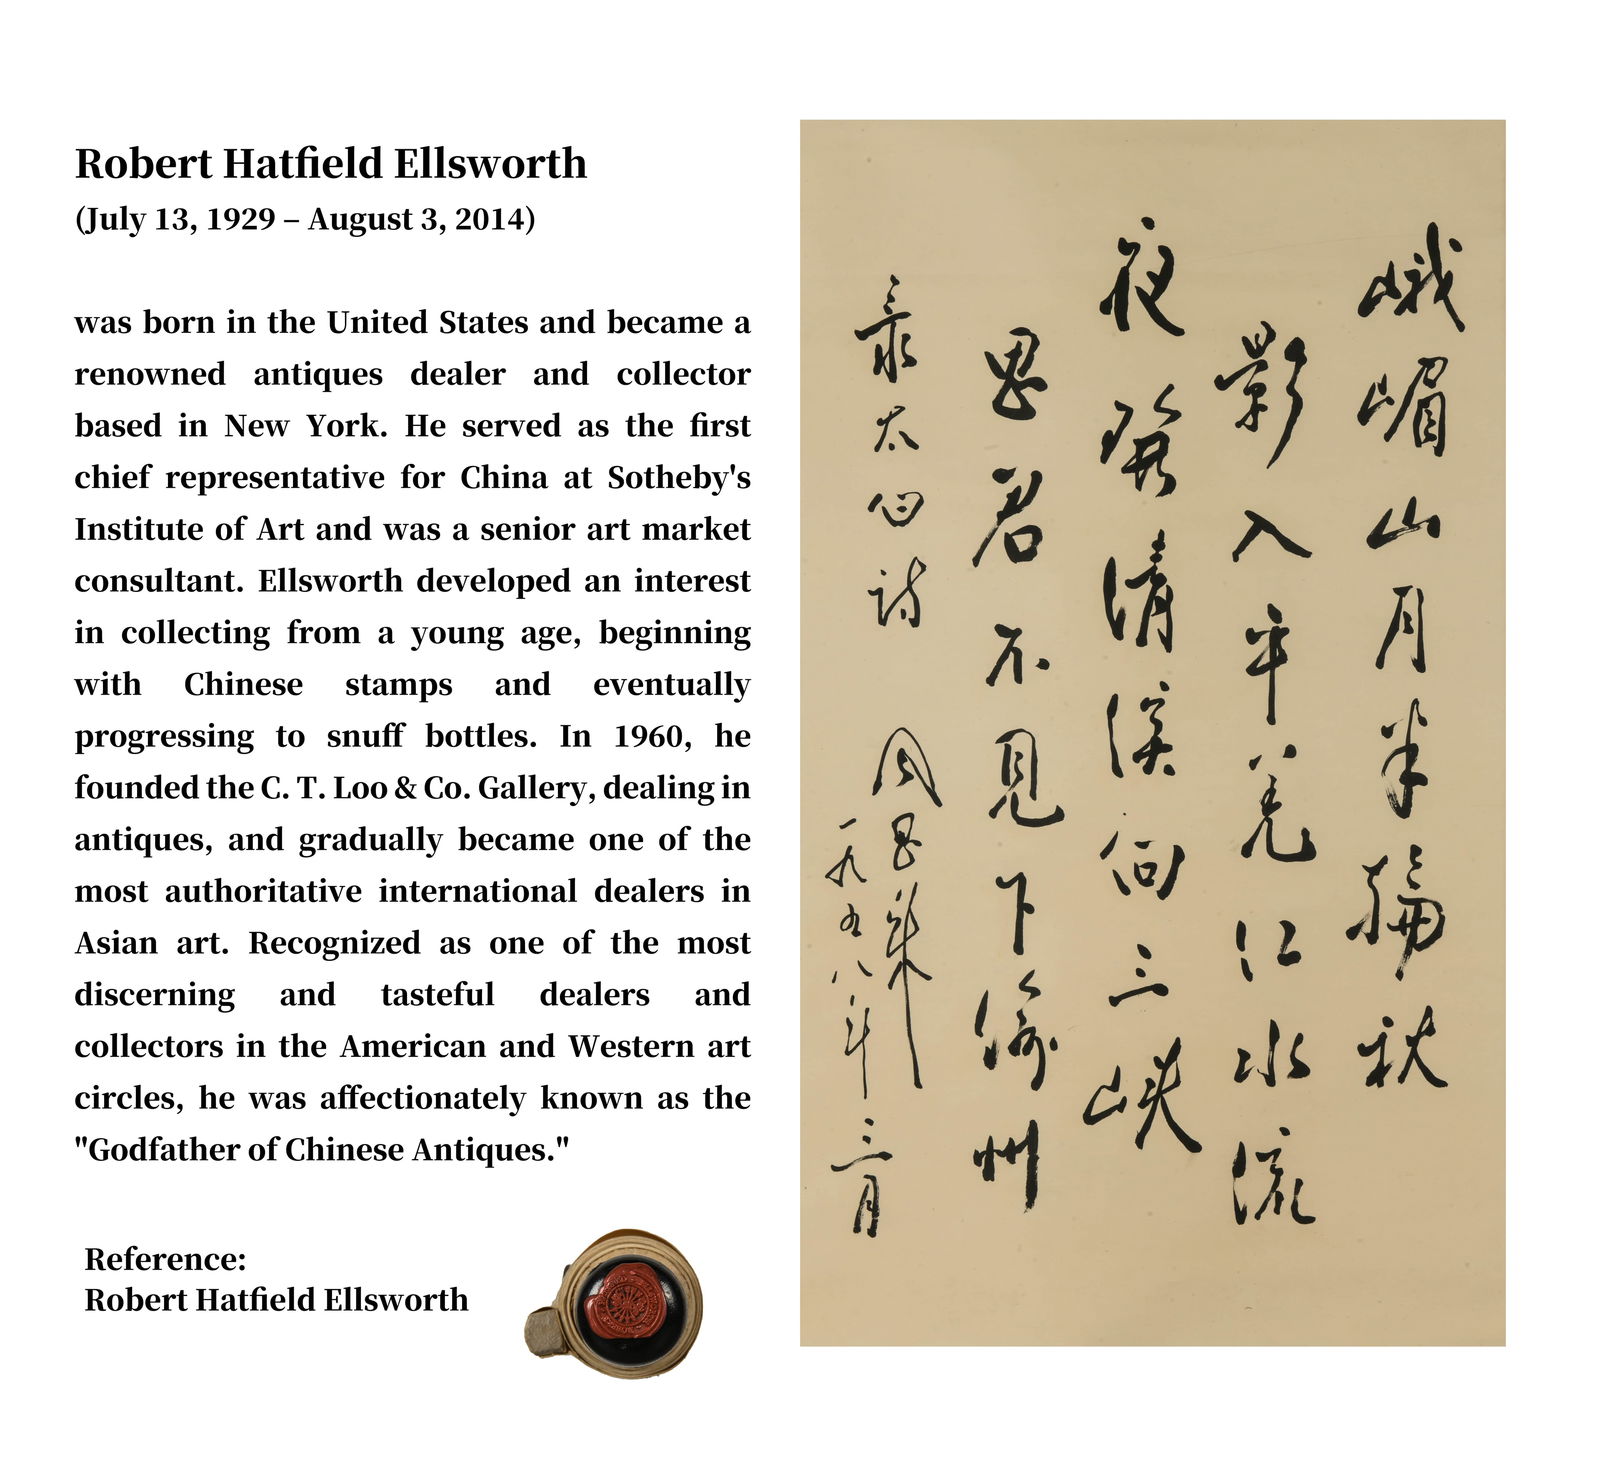 Robert Hatfield Ellsworth
(July 13, 1929 – August 3, 2014)
was born in the United States and became a
renowned antiques dealer and collector
based in New York. He served as the first
chief representative for China at Sotheby's
Institute of Art and was a senior art market
consultant. Ellsworth developed an interest
in collecting from a young age, beginning
with Chinese stamps and eventually
progressing to snuff bottles. In 1960, he
founded the C. T. Loo & Co. Gallery, dealing in
antiques, and gradually became one of the
most authoritative international dealers in
Asian art. Recognized as one of the most
discerning and tasteful dealers and
collectors in the American and Western art
circles, he was affectionately known as the
"Godfather of Chinese Antiques."
Reference:
Robert Hatfield Ellsworth
峨嵋山月半輪秋
影入平羌江水流
夜發清溪向三峽
思君不見下渝州
录太白诗
周恩来
一九五八年三月